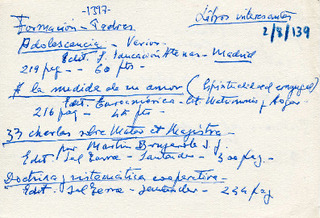 -1317-
Libros interesantes
Formación - Padres 2/8/139
Adolescencia - Varios.
Edit. S. Educación Atenas - Madrid
219 pag -- 60 pts -
A la medida de su amor (Espiritualidad conyugal)
Edit. Euramérica - Matrimonio y Hogar
216 pag - 45 pts -
33 charlas sobre Mater et Magistra
Por Martín Brugarola S.J.
Edit. Sal Terrae - Santander - 300 pag. -
Doctrina y sistemática cooperativa -
Edit. Sal Terrae - Santander - 244 pag